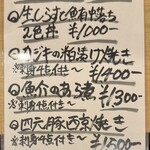 生しらすと鮪中落ち
2色丼 ¥1000-
カジキの粕漬け焼き
※刺身4点付き〜 ¥1400-
魚介のあら煮 ¥1300-
※刺身4点付き〜
四元豚西京焼き
※刺身4点付き〜 ¥1500-